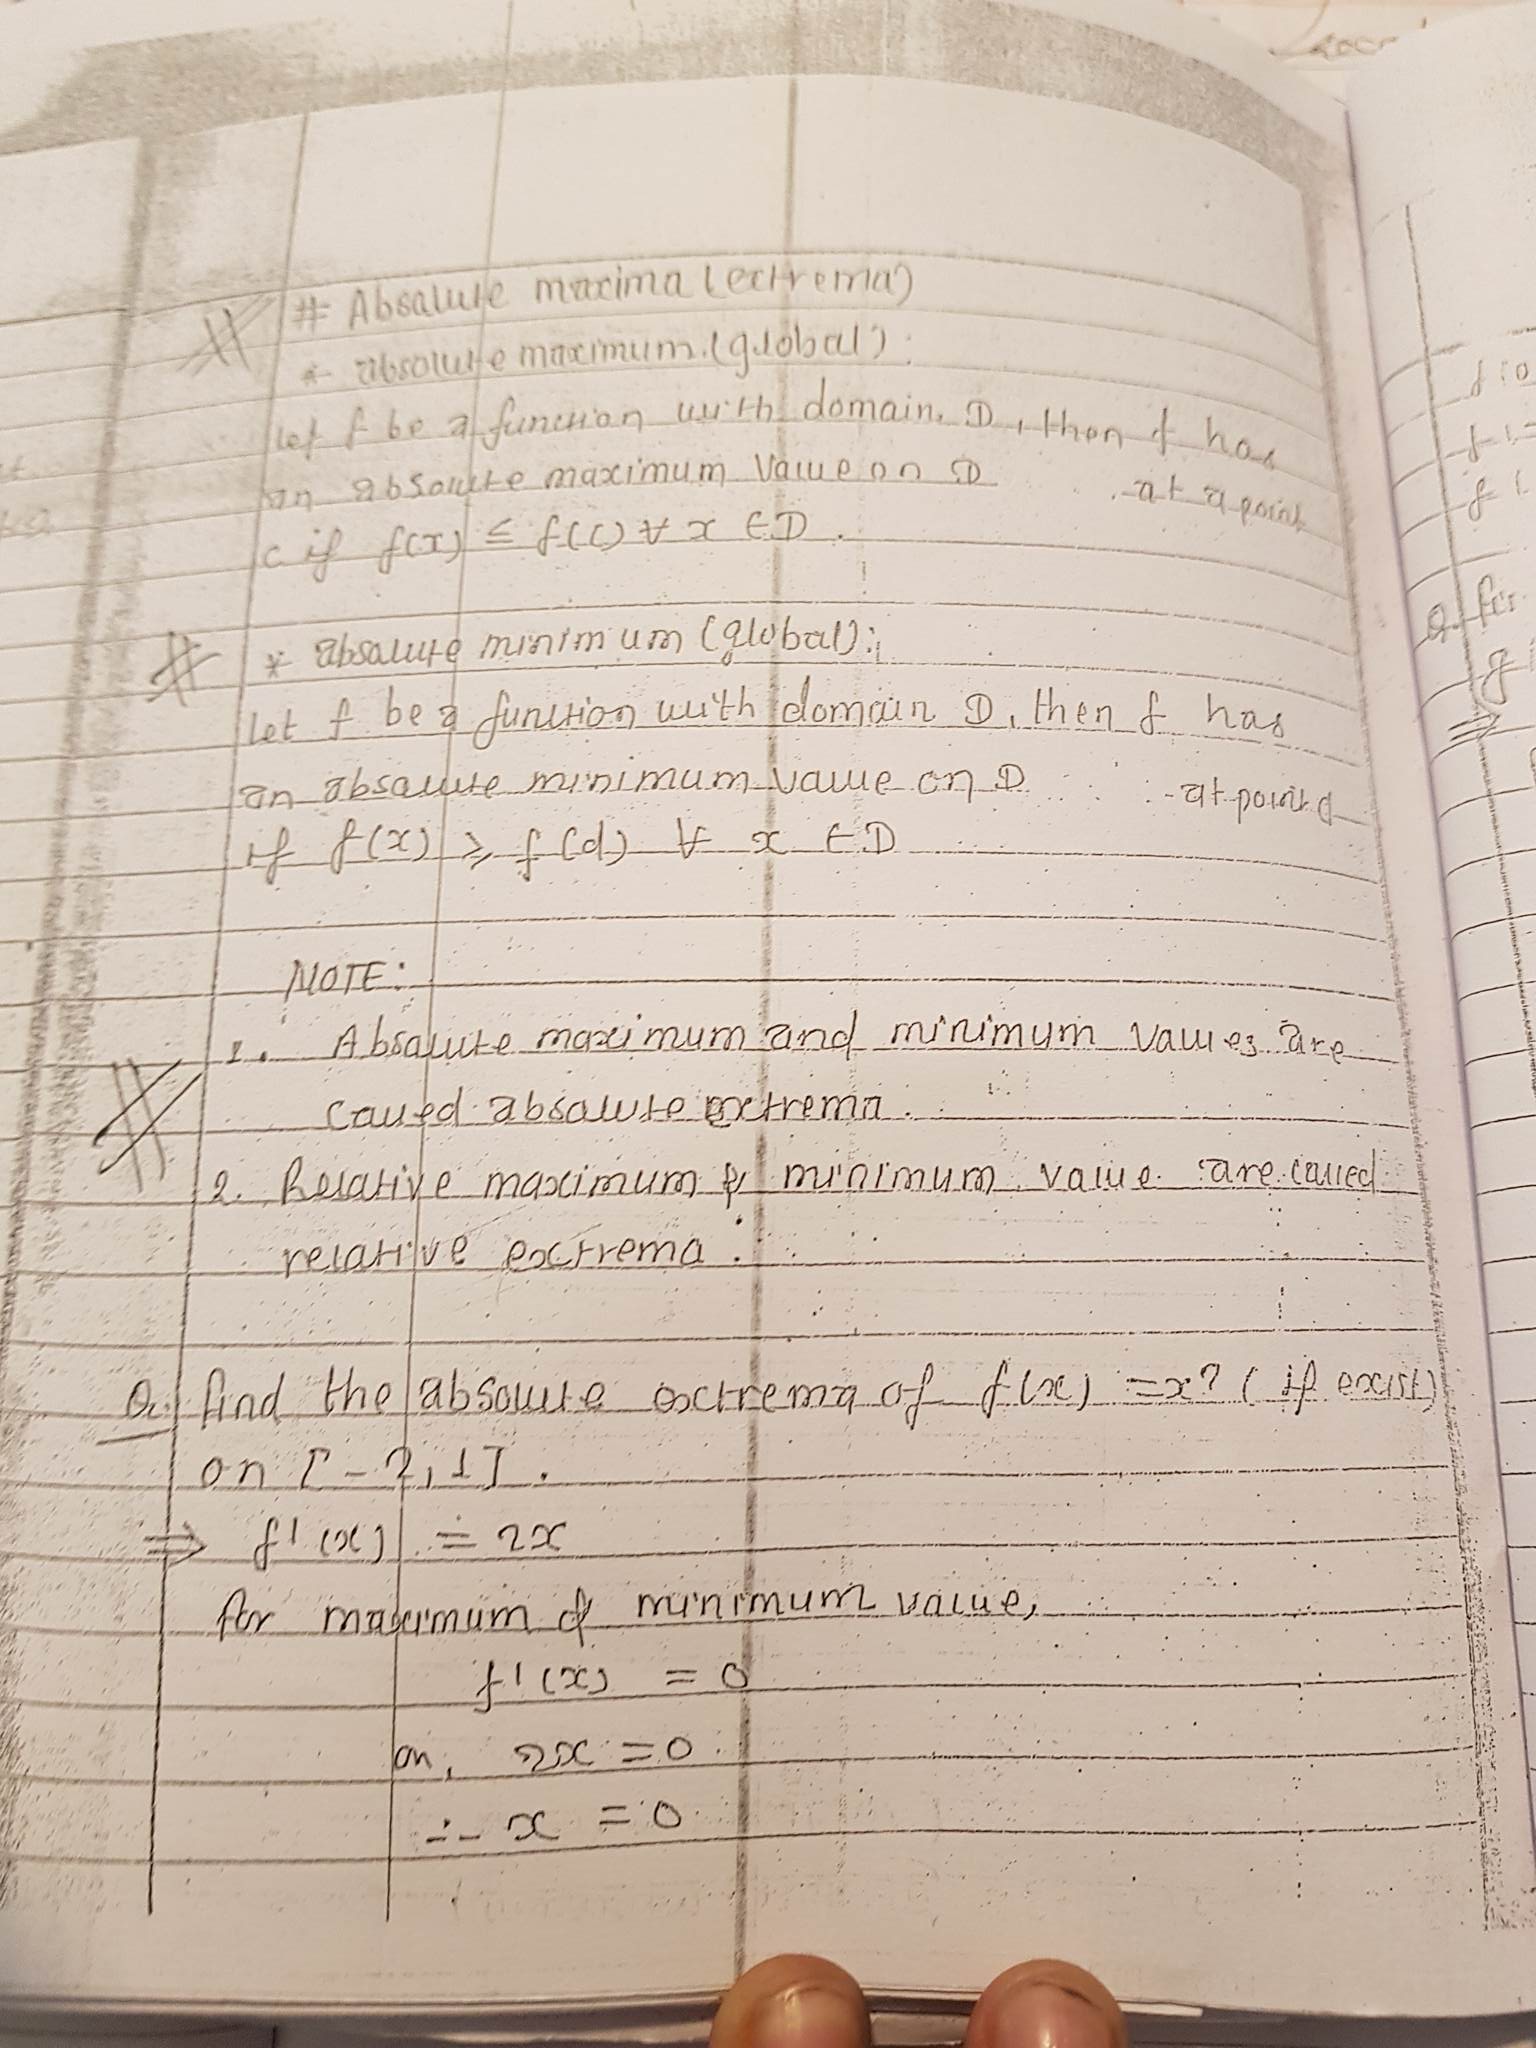 # Absolute maxima (extrema)
* absolute maximum (global):
let f be a function with domain D, then f has
an absolute maximum value on D at a point
c if f(x) ≤ f(c) ∀ x ∈ D.
* absolute minimum (global):
let f be a function with domain D, then f has
an absolute minimum value on D at point d
if f(x) ≥ f(d) ∀ x ∈ D
NOTE:
1. Absolute maximum and minimum values are
called absolute extrema.
2. Relative maximum & minimum value are called
relative extrema.
Q. find the absolute extrema of f(x) = x² (if exist)
on [-2, 1].
⇒ f'(x) = 2x
for maximum & minimum value,
f'(x) = 0
or, 2x = 0
∴ x = 0